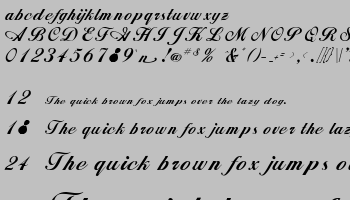 abcdefghijklmnopqrstuvwxyz
ABCDEFGHIJKLMNOPQRS
01234567
12 The quick brown fox jumps over the lazy dog.
The quick brown fox jumps over the laz
24 The quick brown fox jumps o